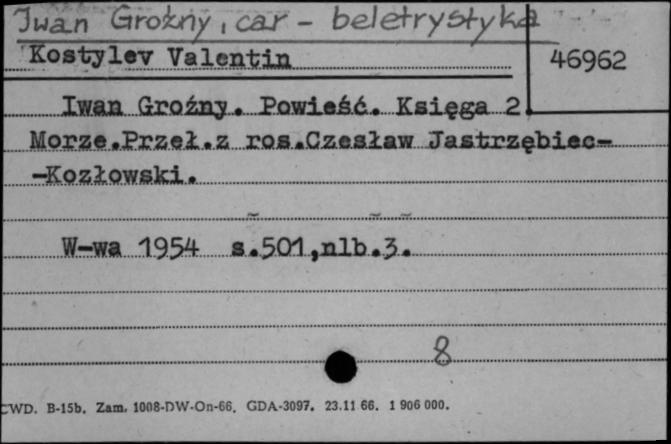 Iwan Groźny, car - beletrystyka
Kostylev Valentin
46962
Iwan Groźny. Powieść. Księga 2.
Morze.Przeł.z ros.Czesław Jastrzębiec-
-Kozłowski.
W-wa 1954 s.501,nlb.3.
8
CWD. B-15b. Zam. 1008-DW-On-66. GDA-3097. 23.11 66. 1 906 000.